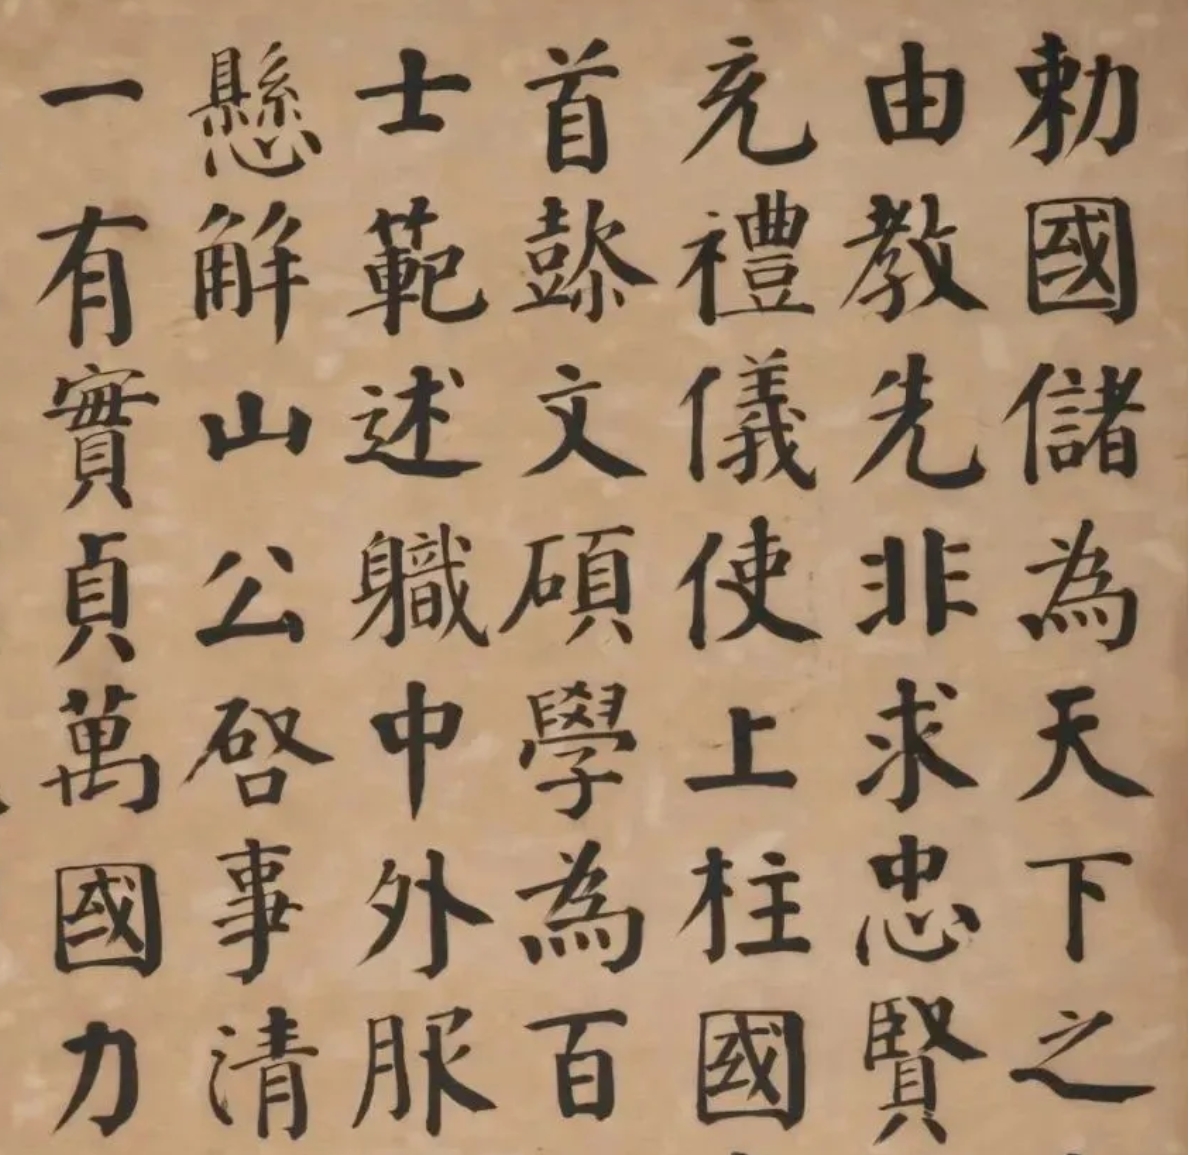 勅國儲為天下之
由教先非求忠賢
充禮儀使上柱國
首懿文碩學為百
士範述職中外服
懸解山公啓事清
一有實貞萬國力